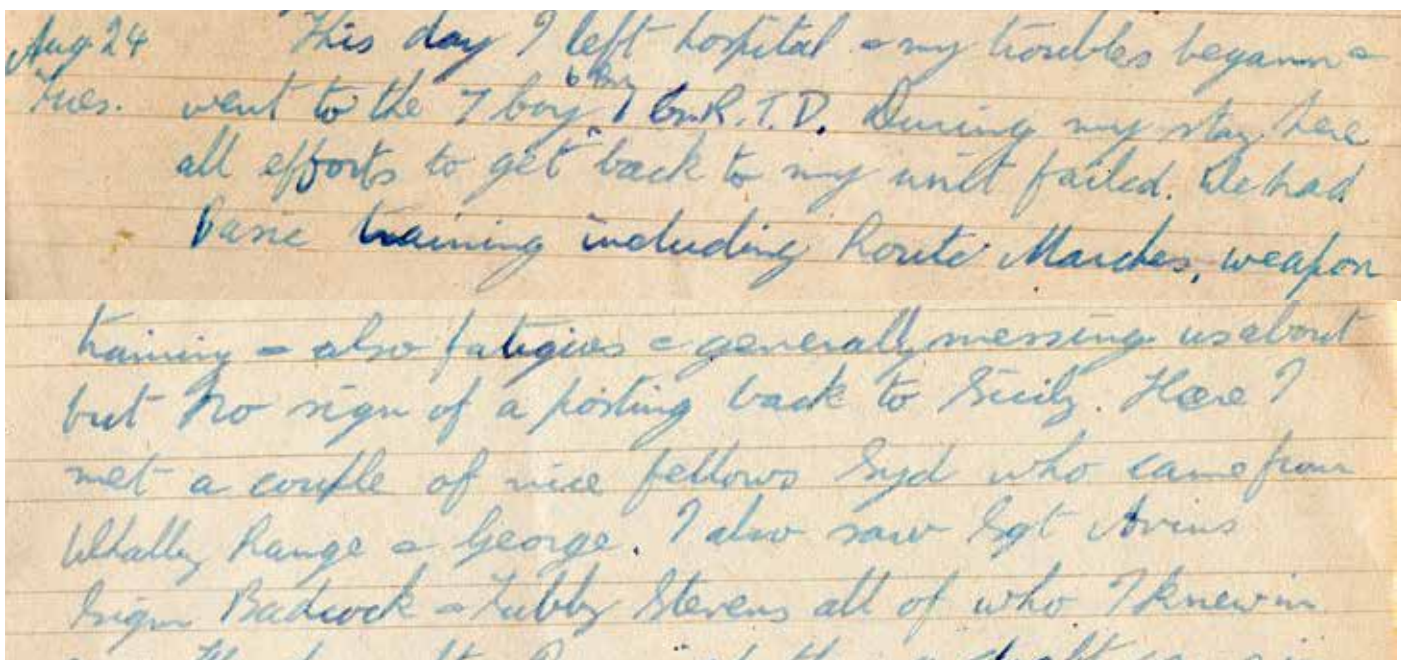 Aug 24 This day I left hospital & my troubles begann &
Tues. went to the 7 boy R.T.D. During my stay here
all efforts to get back to my unit failed. We had
Basic training including Route Marches, weapon
training & also fatigies & generally messing us about
but No sign of a posting back to Sicily. Here I
met a couple of nice fellows Syd who came from
Whalley Range & George. I also saw Sgt Avins
Sigm Badcock & Tubby Stevens all of who I knew in